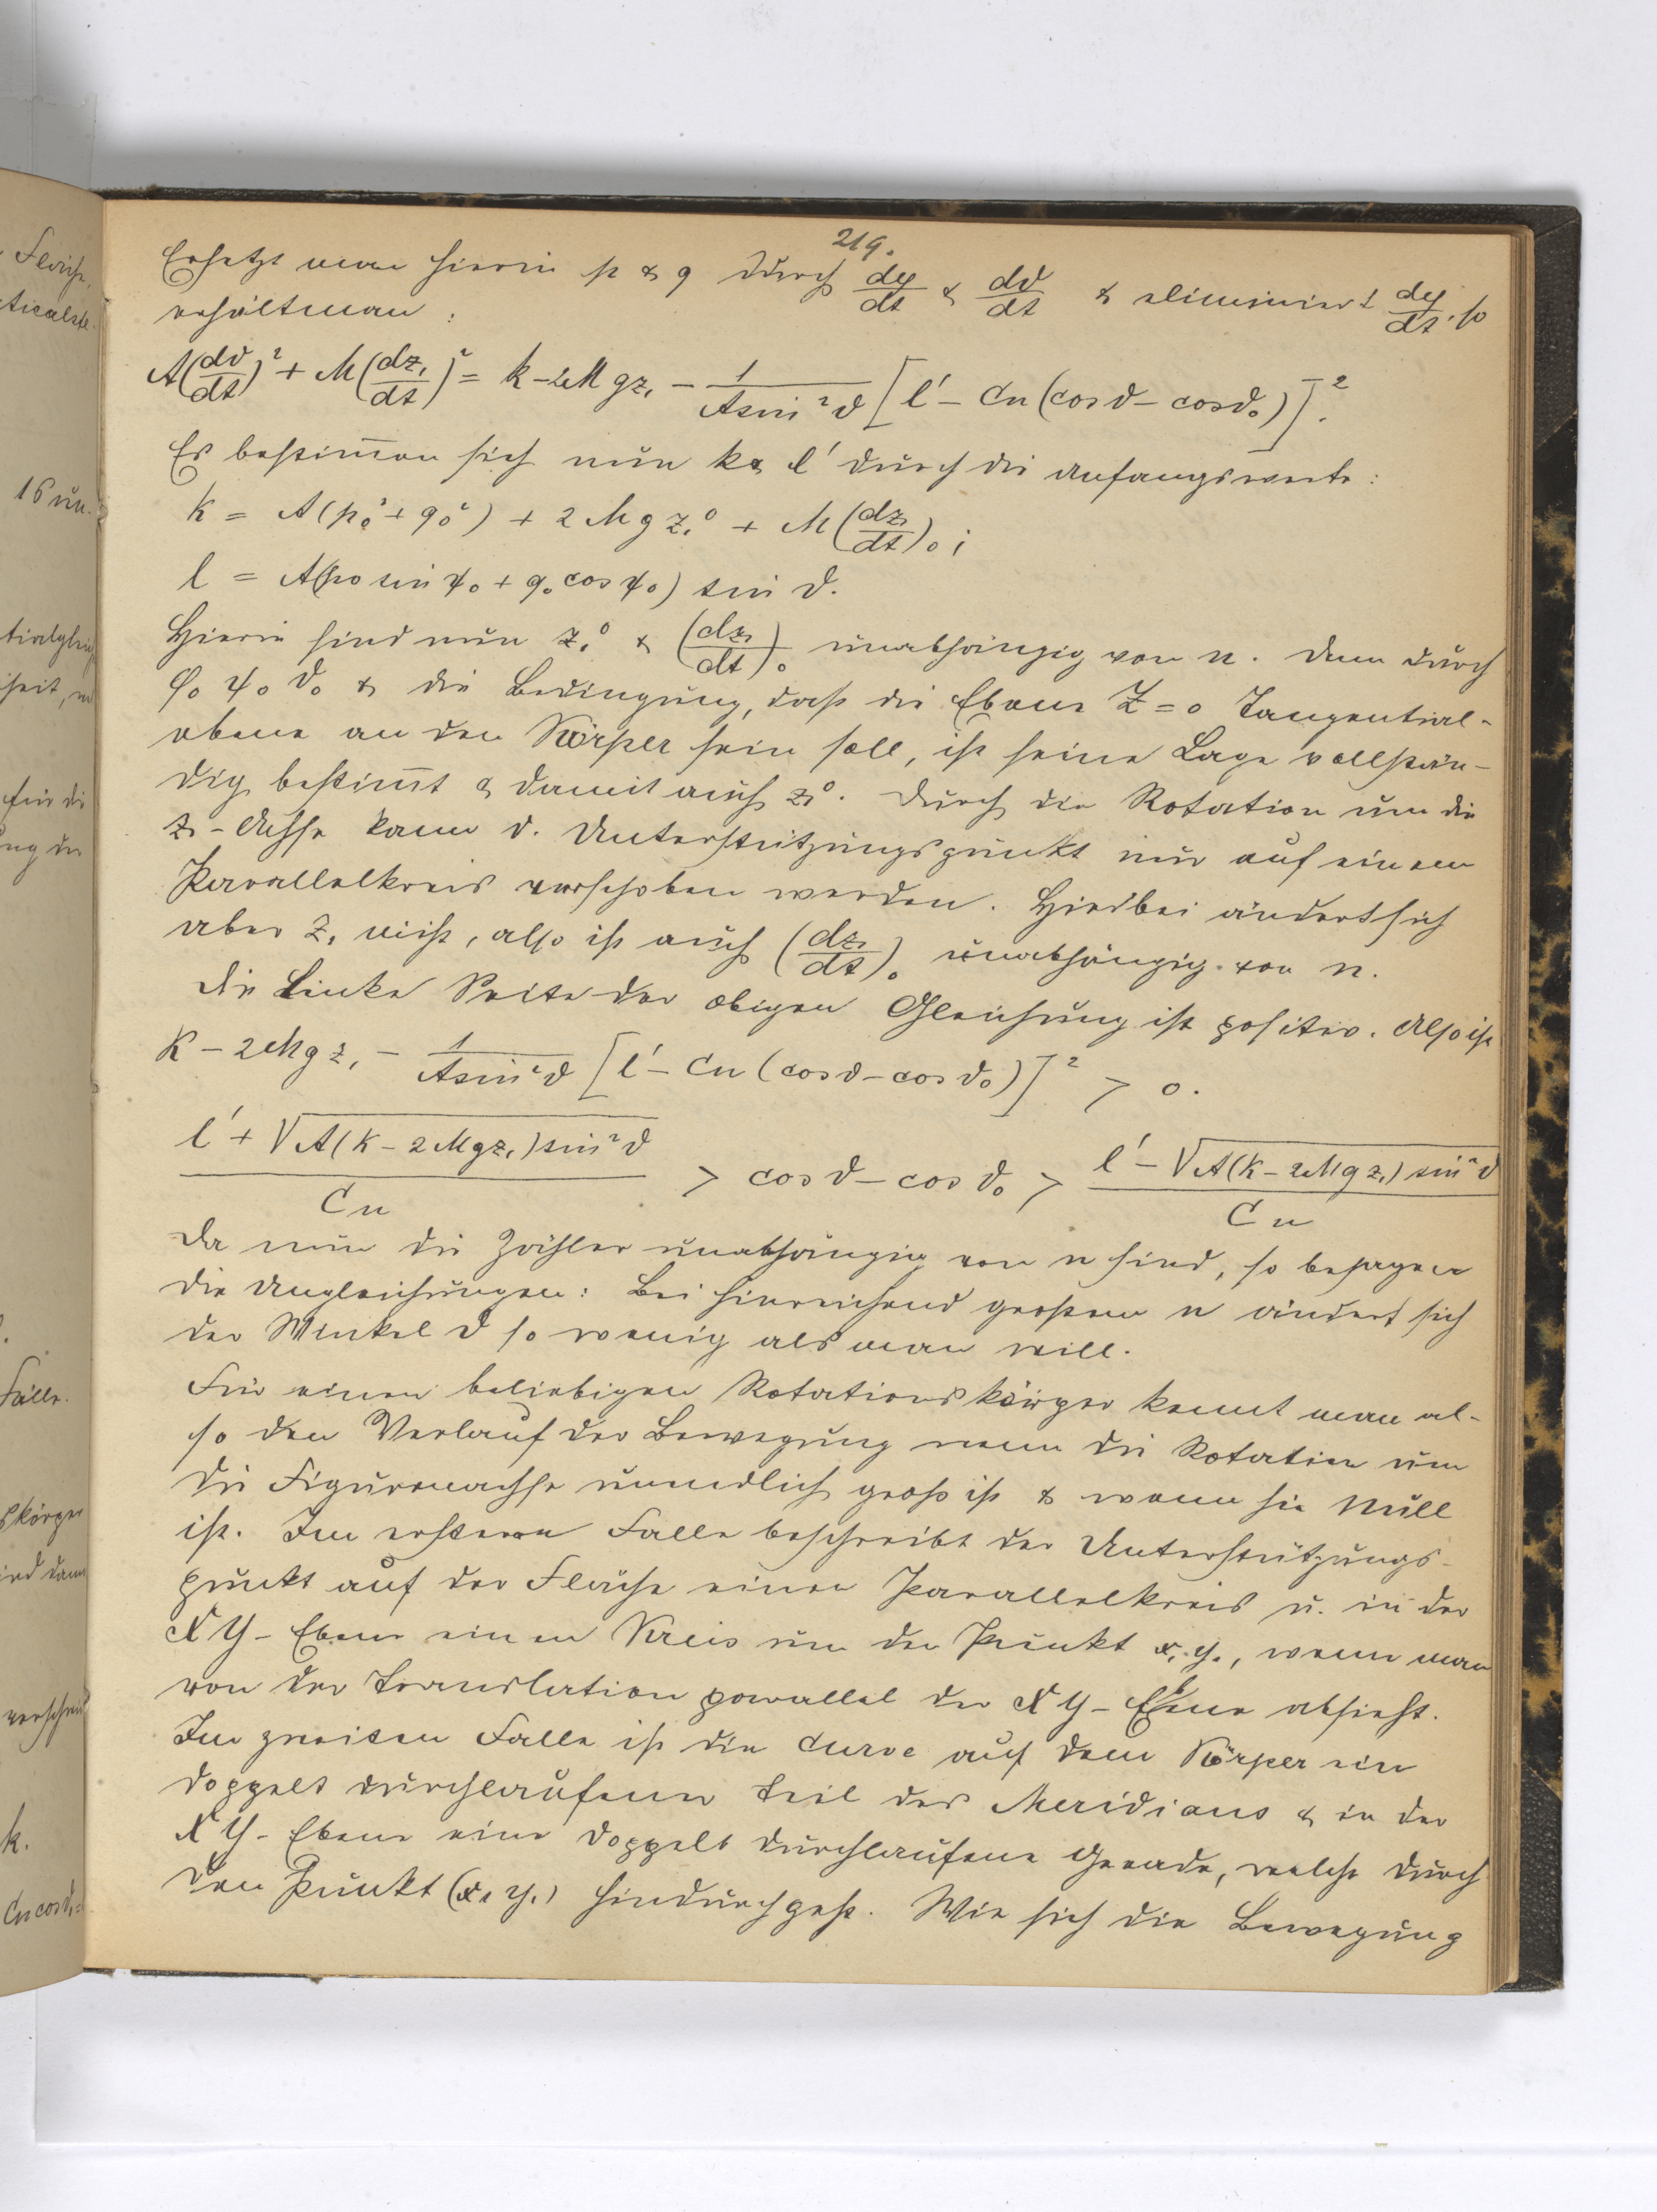 219.
Ersetzt man hierin p & q durch dφ/dt & dϑ/dt & eliminiert dφ/dt, so
erhält man :
A(dϑ/dt)² + M(dz₁/dt)² = k - 2Mgz₁ - 1/(A sin²ϑ) [l' - Cn(cosϑ - cosϑ₀)]².
Es bestim̅en sich nun k & l' durch die Anfangswerte :
k = A(p₀² + q₀²) + 2Mgz₁⁰ + M(dz₁/dt)₀ ;
l = A(p₀ sin ψ₀ + q₀ cos ψ₀) sin ϑ.
Hierin sind nun z₁⁰ & (dz₁/dt)₀ unabhängig von n. Denn durch
φ₀ ψ₀ ϑ₀ & die Bedingung, daß die Ebene Z = 0 Tangential-
ebene an den Körper sein soll, ist seine Lage vollstän-
dig bestim̅t & damit auch z₁⁰. Durch die Rotation um die
z-Achse kann d. Unterstützungspunkt nur auf einem
Parallelkreis verschoben werden. Hierbei ändert sich
aber z₁ nicht, also ist auch (dz₁/dt)₀ unabhängig von n.
Die Linke Seite der obigen Gleichung ist positiv. Also ist
k - 2Mgz₁ - 1/(A sin²ϑ) [l' - Cn(cosϑ - cosϑ₀)]² > 0.
(l' + √A(k - 2Mgz₁) sin²ϑ)/Cn > cosϑ - cosϑ₀ > (l' - √A(k - 2Mgz₁) sin²ϑ)/Cn
Da nun die Zähler unabhängig von n sind, so besagen
die Ungleichungen : Bei hinreichend großem n ändert sich
der Winkel ϑ so wenig als man will.
Für einen beliebigen Rotationskörper kennt man al-
so den Verlauf der Bewegung wenn die Rotation um
die Figurenachse unendlich groß ist & wenn sie Null
ist. Im ersteren Falle beschreibt der Unterstützungs-
punkt auf der Fläche einen Parallelkreis u. in der
XY-Ebene einen Kreis um den Punkt x₁ y₁, wenn man
von der Translation parallel der XY-Ebene absieht.
Im zweiten Falle ist die Curve auf dem Körper ein
doppelt durchlaufener Teil des Meridians & in der
XY-Ebene eine doppelt durchlaufene Gerade, welche durch
den Punkt (x₁ y₁) hindurchgeht. Wie sich die Bewegung